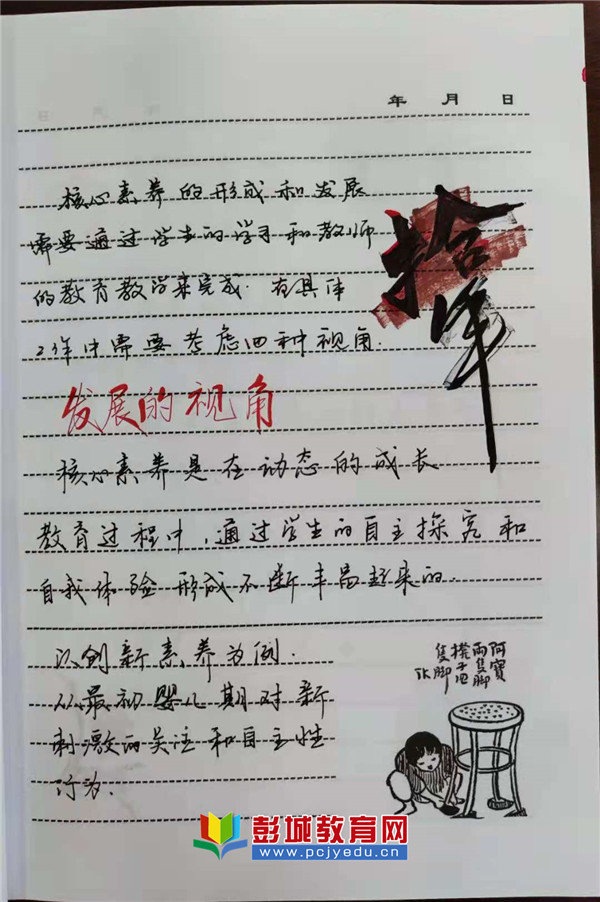 年 月 日
拾年
核心素养的形成和发展
需要通过学生的学习和教师
的教育教学来完成.在具体
工作中需要考虑四种视角.
发展的视角
核心素养是在动态的成长
教育过程中,通过学生的自主探究和
自我体验形成不断丰富起来的.
以创新素养为例.
从最初婴儿期对新
刺激的关注和自主性
行为.
阿寶
兩隻腳
櫈子四
隻腳
TK
彭城教育网
www.pcjyedu.cn